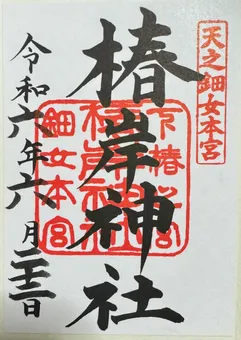 天之鈿女本宮
椿岸神社
鈿女本宮
令和六年六月二十三日